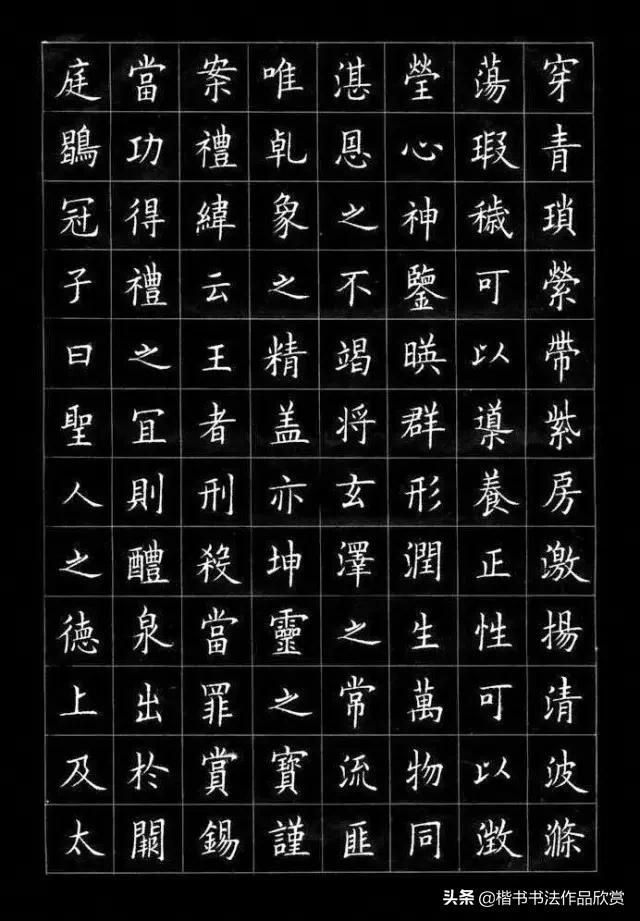 穿青瑣縈帶紫房激揚清波滌
蕩瑕穢可以導養正性可以澂
瑩心神鑒暎群形潤生萬物同
湛恩之不竭将玄澤之常流匪
唯乹象之精盖亦坤靈之寶謹
案禮緯云王者刑殺當罪賞錫
當功得禮之冝則醴泉出於闕
庭鶡冠子曰聖人之徳上及太
头条 @楷书书法作品欣赏